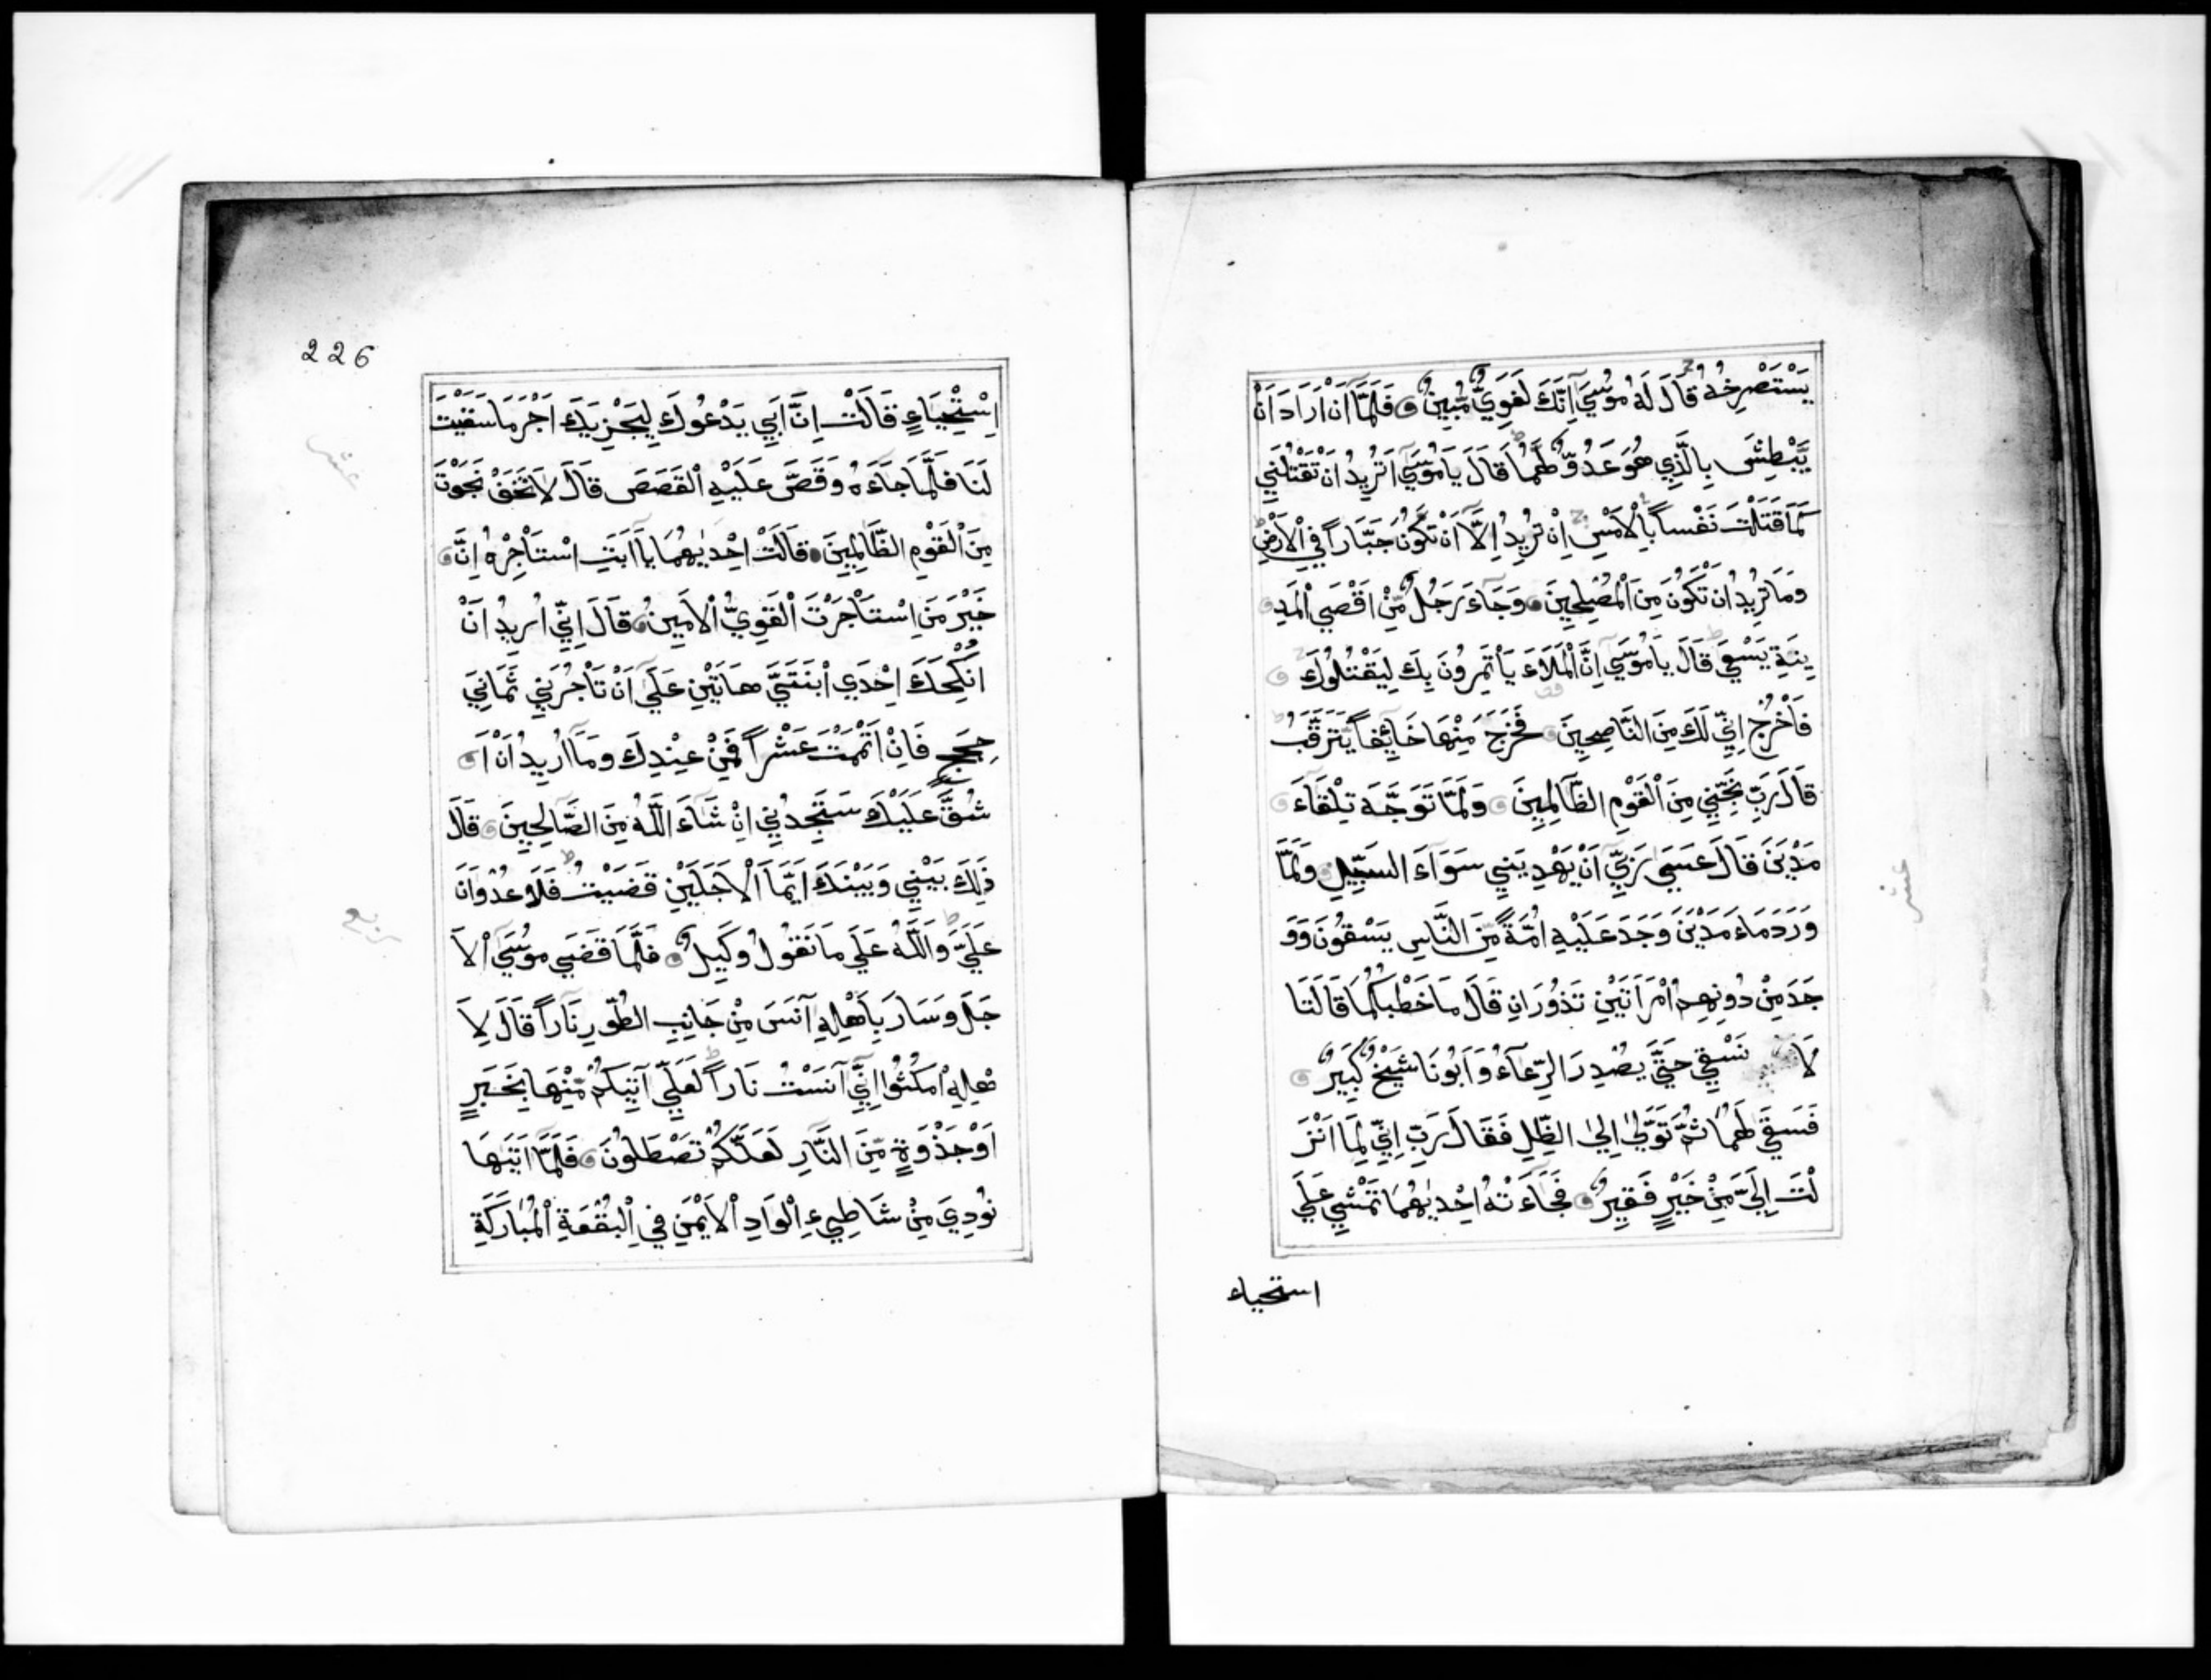 يَسْتَصْرِخُهُ قَالَ لَهُ مُوسَيٓ اِنَّكَ لَغَوِيٌّ مُّبِينٌ فَلَمَّآ اَنْ اَرَادَ اَنْ
يَّبْطِشَ بِالَّذِي هُوَ عَدُوٌّ لَّهُمَا قَالَ يَامُوسَيٓ اَتُرِيدُ اَنْ تَقْتُلَنِي
كَمَا قَتَلْتَ نَفْساً بِالْاَمْسِ اِنْ تُرِيدُ اِلَّآ اَنْ تَكُونَ جَبَّاراً فِي الْاَرْضِ
وَمَا تُرِيدُ اَنْ تَكُونَ مِنَ الْمُصْلِحِينَ وَجَآءَ رَجُلٌ مِّنْ اَقْصَي الْمَدِ
ينَةِ يَسْعَي قَالَ يَامُوسَيٓ اِنَّ الْمَلَاءَ يَاْتَمِرُونَ بِكَ لِيَقْتُلُوكَ
فَاخْرُجْ اِنِّي لَكَ مِنَ النَّاصِحِينَ فَخَرَجَ مِنْهَا خَآئِفاً يَّتَرَقَّبُ
قَالَ رَبِّ نَجِّنِي مِنَ الْقَوْمِ الظَّالِمِينَ وَلَمَّا تَوَجَّهَ تِلْقَآءَ
مَدْيَنَ قَالَ عَسَي رَبِّيٓ اَنْ يَهْدِيَنِي سَوَآءَ السَّبِيلِ وَلَمَّا
وَرَدَ مَآءَ مَدْيَنَ وَجَدَ عَلَيْهِ اُمَّةً مِّنَ النَّاسِ يَسْقُونَ وَوَ
جَدَ مِنْ دُونِهِمُ امْرَاَتَيْنِ تَذُورَانِ قَالَ مَا خَطْبُكُمَا قَالَتَا
لَا نَسْقِي حَتَّيٰ يُصْدِرَ الرِّعَآءُ وَاَبُونَا شَيْخٌ كَبِيرٌ
فَسَقَي لَهُمَا ثُمَّ تَوَلّٰي اِلَي الظِّلِّ فَقَالَ رَبِّ اِنِّي لِمَآ اَنْزَ
لْتَ اِلَيَّ مِنْ خَيْرٍ فَقِيرٌ فَجَآءَتْهُ اِحْدٰيهُمَا تَمْشِي عَلَي
استحياء
226
اِسْتِحْيَاءٍ قَالَتْ اِنَّ اَبِي يَدْعُوكَ لِيَجْزِيَكَ اَجْرَ مَا سَقَيْتَ
لَنَا فَلَمَّا جَآءَهُ وَقَصَّ عَلَيْهِ الْقَصَصَ قَالَ لَا تَخَفْ نَجَوْتَ
مِنَ الْقَوْمِ الظَّالِمِينَ قَالَتْ اِحْدٰيهُمَا يَآاَبَتِ اسْتَاْجِرْهُ اِنَّ
خَيْرَ مَنِ اسْتَاْجَرْتَ الْقَوِيُّ الْاَمِينُ قَالَ اِنِّيٓ اُرِيدُ اَنْ
اُنْكِحَكَ اِحْدَي ابْنَتَيَّ هَاتَيْنِ عَلَيٓ اَنْ تَاْجُرَنِي ثَمَانِيَ
حِجَجٍ فَاِنْ اَتْمَمْتَ عَشْراً فَمِنْ عِنْدِكَ وَمَآ اُرِيدُ اَنْ اَ
شُقَّ عَلَيْكَ سَتَجِدُنِي اِنْ شَآءَ اللّٰهُ مِنَ الصَّالِحِينَ قَالَ
ذٰلِكَ بَيْنِي وَبَيْنَكَ اَيَّمَا الْاَجَلَيْنِ قَضَيْتُ فَلَا عُدْوَانَ
عَلَيَّ وَاللّٰهُ عَلَي مَا نَقُولُ وَكِيلٌ فَلَمَّا قَضَي مُوسَي الْاَ
جَلَ وَسَارَ بِاَهْلِهِ آنَسَ مِنْ جَانِبِ الطُّورِ نَاراً قَالَ لِاَ
هْلِهِ امْكُثُوا اِنِّيٓ آنَسْتُ نَاراً لَعَلِّي آتِيكُمْ مِّنْهَا بِخَبَرٍ
اَوْ جَذْوَةٍ مِّنَ النَّارِ لَعَلَّكُمْ تَصْطَلُونَ فَلَمَّآ اَتٰيهَا
نُودِيَ مِنْ شَاطِيءِ الْوَادِ الْاَيْمَنِ فِي الْبُقْعَةِ الْمُبَارَكَةِ
عشر
ربع
عشر